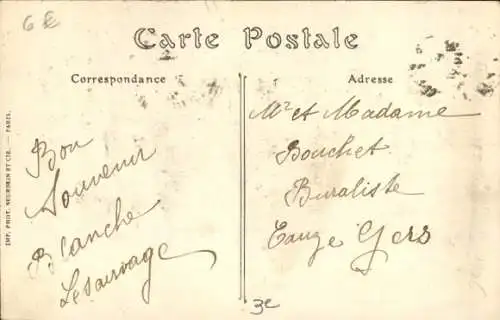 6 €
Carte Postale
Correspondance
Adresse
Bon
Souvenir
Blanche
Lesauvage
Mr et Madame
Bouchet
Buraliste
Eauze Gers
3e
IMP. PHOT. NEURDEIN ET CIE. — PARIS.